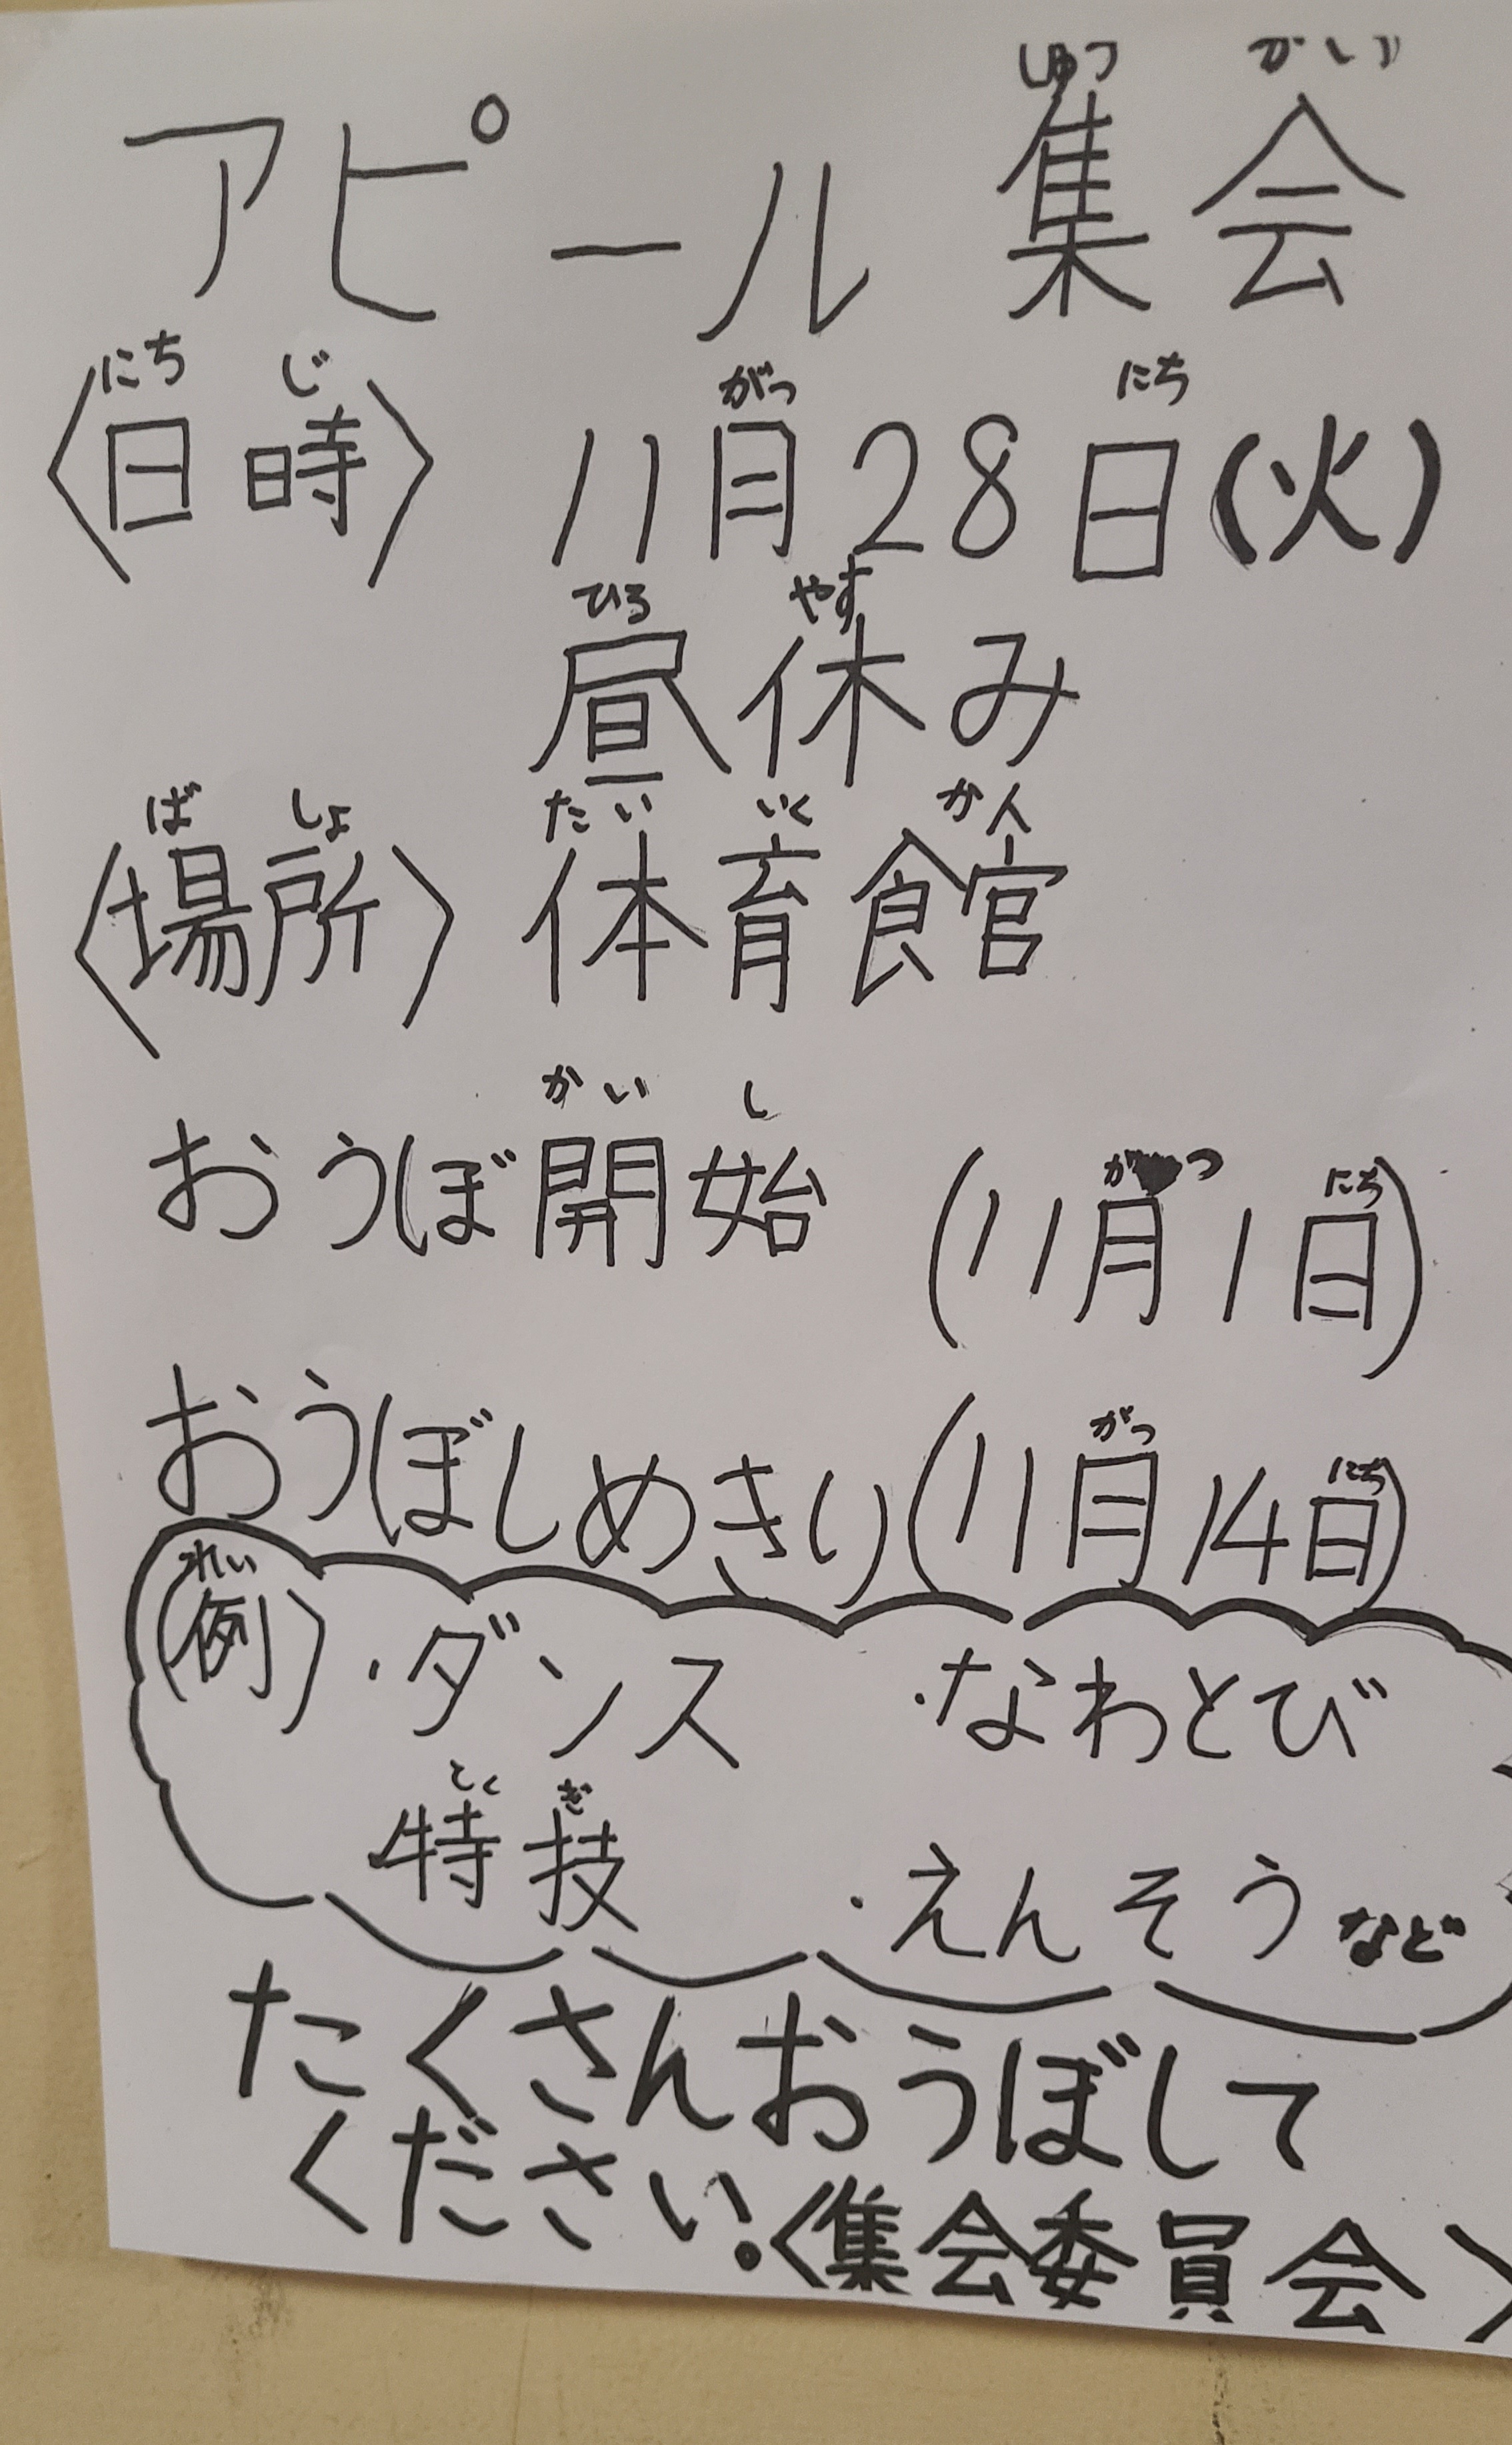 しゅう かい
アピール 集会
にち じ がつ にち
〈日時〉 11月28日(火)
ひる やす
昼休み
ば しょ たい いく かん
〈場所〉 体育館
かい し
おうぼ開始 (11月1日)
がつ にち
おうぼしめきり(11月14日)
がつ にち
れい
(例) ・ダンス ・なわとび
とく ぎ
特技 ・えんそうなど
たくさんおうぼして
ください。〈集会委員会〉